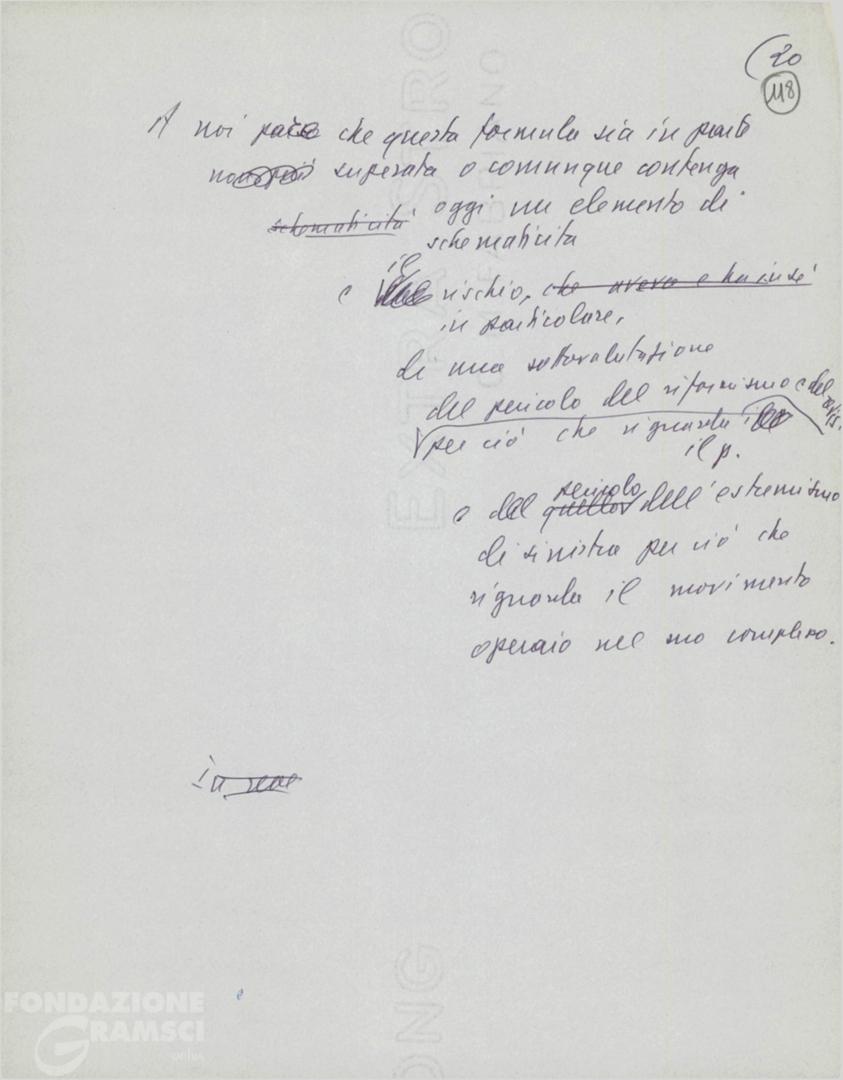 (20
118
A noi pare che questa formula sia in parte
non più superata o comunque contenga
schematicità oggi un elemento di
schematicità
e il rischio, che aveva e ha in sé
in particolare,
di una sottovalutazione
del pericolo del riformismo e del
per ciò che riguarda il
il p.
e del quello pericolo dell'estremismo
di sinistra per ciò che
riguarda il movimento
operaio nel suo complesso.
in
FONDAZIONE
GRAMSCI
onlus
EXTRA STRONG
FABRIANO